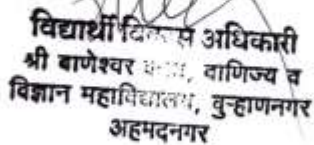 विद्यार्थी विकास अधिकारी
श्री बाणेश्वर कला, वाणिज्य व
विज्ञान महाविद्यालय, वुऱ्हाणनगर
अहमदनगर